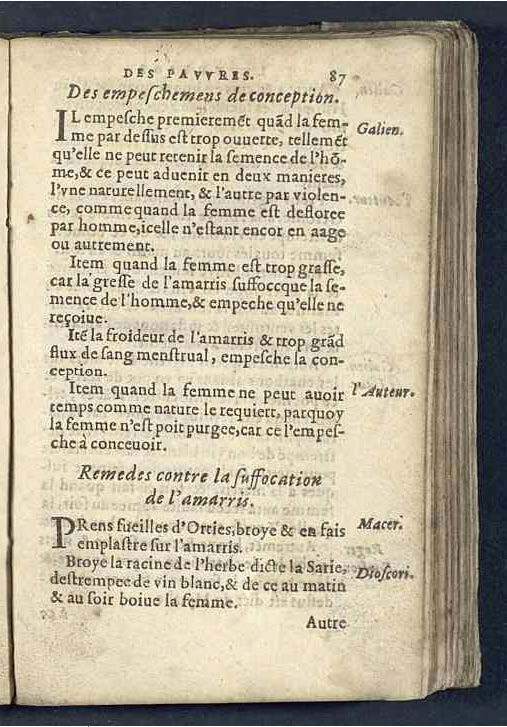 DES PAVVRES. 87
Des empeſchemens de conception.
IL empeſche premieremẽt quãd la fem-
me par deſſus eſt trop ouuerte, tellemẽt
qu'elle ne peut retenir la ſemence de l'hõ-
me,& ce peut aduenir en deux manieres,
l'vne naturellement, & l'autre par violen-
ce, comme quand la femme eſt defloree
par homme,icelle n'eſtant encor en aage
ou autrement.
Galien.
Item quand la femme eſt trop graſſe,
car la greſſe de l'amarris ſuffoccque la ſe-
mence de l'homme,& empeche qu'elle ne
reçoiue.
Itẽ la froideur de l'amarris & trop grãd
flux de ſang menſtrual, empeſche la con-
ception.
Item quand la femme ne peut auoir
temps comme nature le requiert, parquoy
la femme n'eſt poĩt purgee,car ce l'empeſ-
che à conceuoir.
l'Auteur.
Remedes contre la ſuffocation
de l'amarris.
PRens fueilles d'Orties,broye & en fais
emplaſtre ſur l'amarris.
Macer.
Broye la racine de l'herbe dicte la Sarie,
deſtrempee de vin blanc,& de ce au matin
& au ſoir boiue la femme.
Dioſcori.
Autre